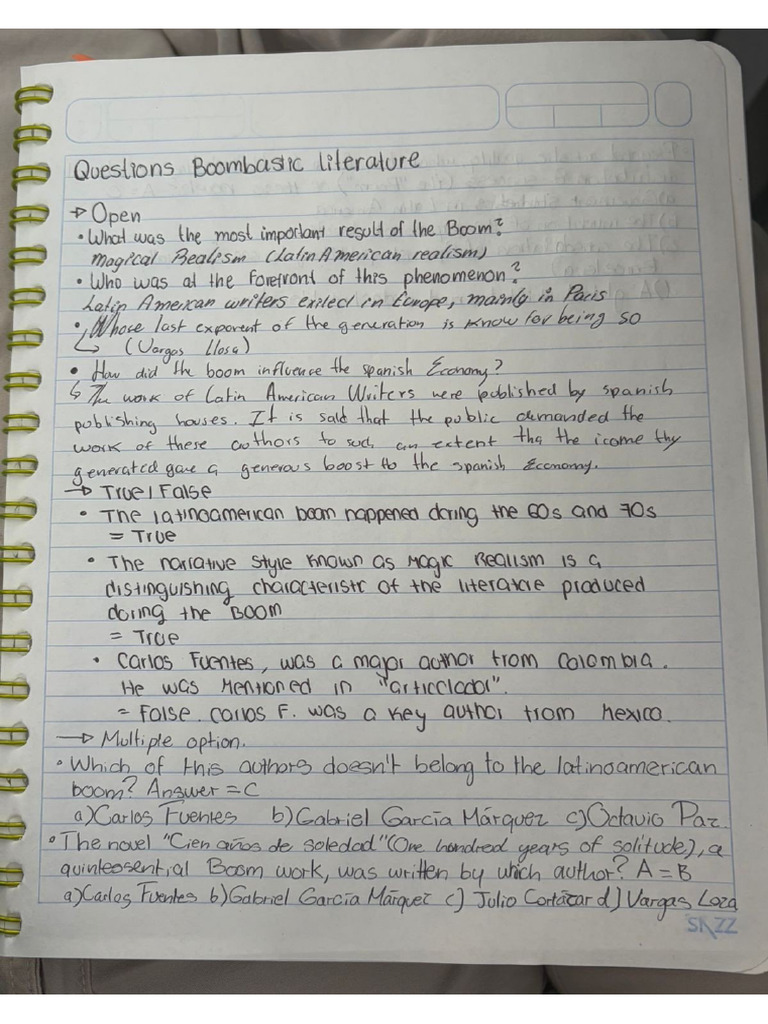 Questions Boombastic literature
→ Open
• What was the most important result of the Boom?
Magical Realism (Latin American realism)
• Who was at the forefront of this phenomenon?
Latin American writers exiled in Europe, mainly in Paris
• Whose last exponent of the generation is know for being so
↳ (Vargas llosa)
• How did the boom influence the spanish Economy?
↳ The work of Latin American Writers were published by spanish
publishing houses. It is said that the public demanded the
work of these authors to such an extent tha the icome thy
generated gave a generous boost to the spanish Economy.
→ True/False
• The latinoamerican boom happened during the 60s and 70s
= True
• The narrative style known as Magic Realism is a
distinguishing characteristc of the literature produced
during the Boom
= True
• Carlos Fuentes, was a major author from Colombia.
He was Mentioned in "articclador".
= False. Carlos F. was a key author from Mexico.
→ Multiple option.
• Which of this authors doesn't belong to the latinoamerican
boom? Answer = C
a) Carlos Fuentes b) Gabriel García Márquez c) Octavio Paz
• The novel "Cien años de soledad" (One hundred years of solitude), a
quinteosential Boom work, was written by which author? A = B
a) Carlos Fuentes b) Gabriel García Márquez c) Julio Cortázar d) Vargas Loza